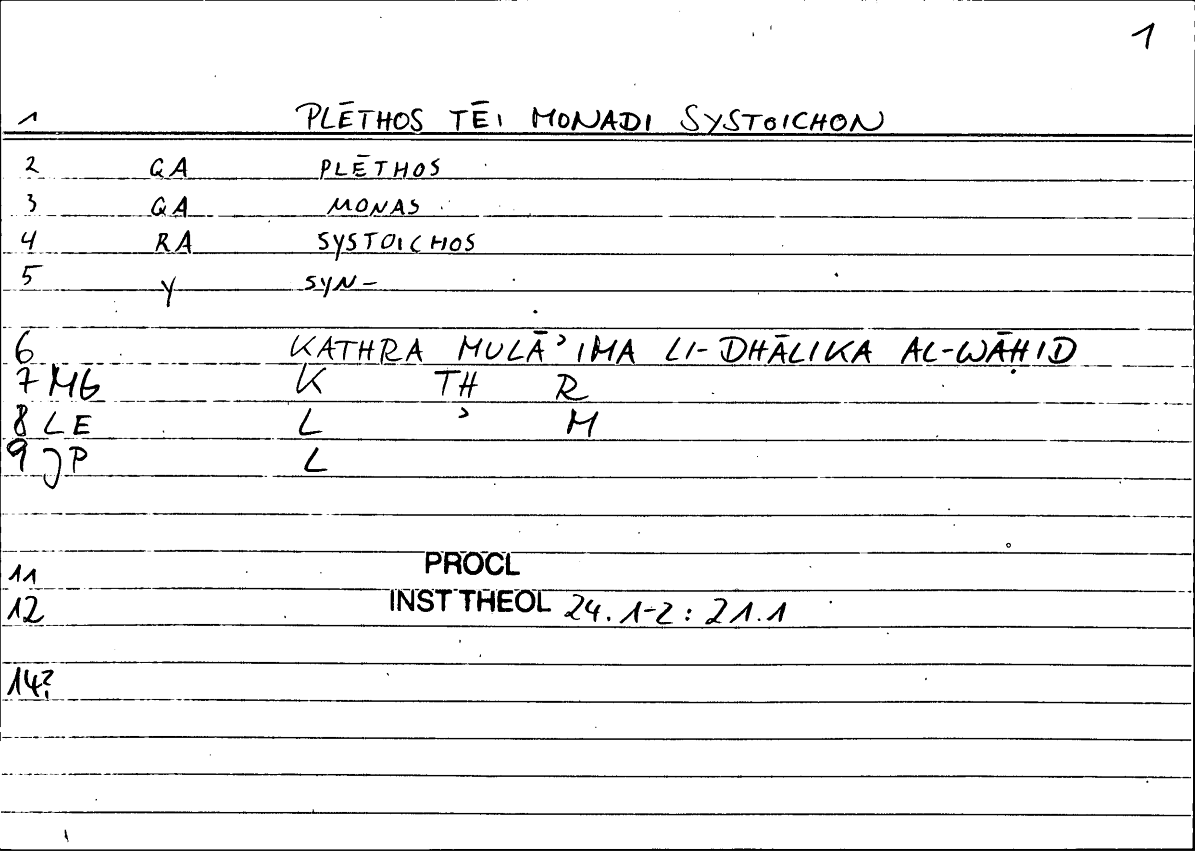 1
1 PLĒTHOS TĒI MONADI SYSTOICHON
2 GA PLĒTHOS
3 GA MONAS
4 RA SYSTOICHOS
5 Y SYN-
6 KATHRA MULĀʾIMA LI-DHĀLIKA AL-WĀḤID
7 MG K TH R
8 LE L ʾ M
9 JP L
11 PROCL
12 INST THEOL 24.1-2 : 21.1
14?